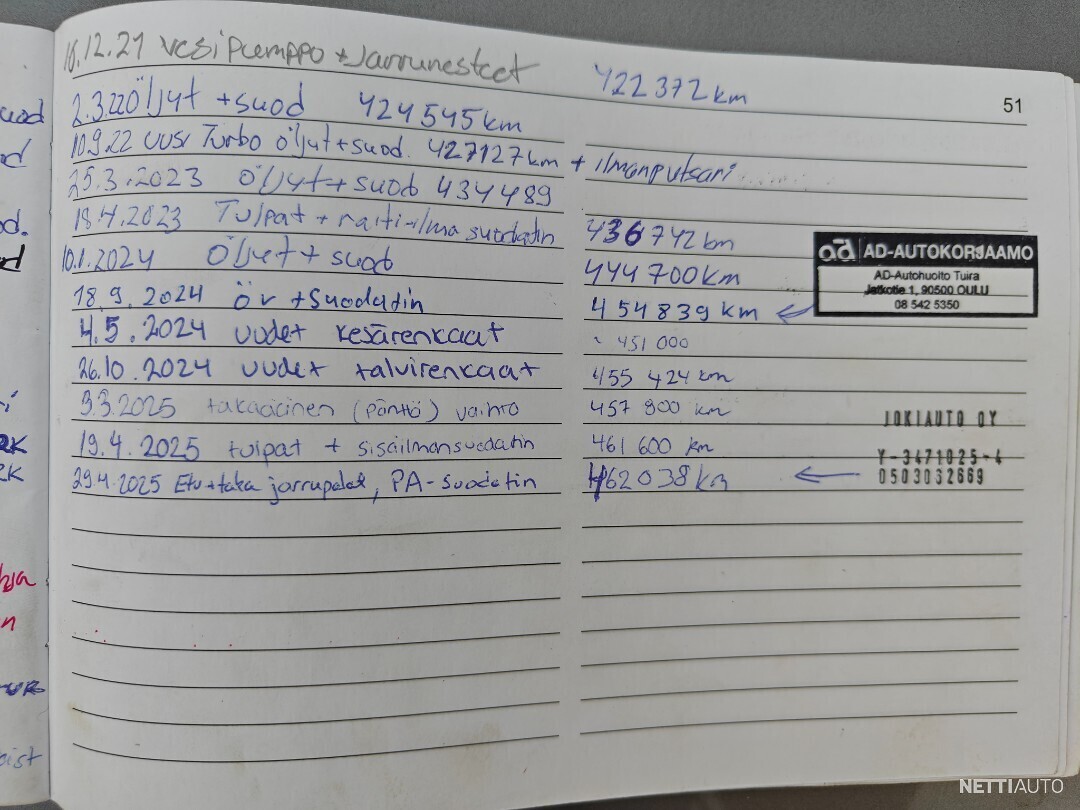 16.12.21 vesipumppu + Jarrunesteet 422 372 km
51
2.3.22 Öljyt + suod 424 545 km
10.9.22 uusi Turbo öljyt + suod. 427127 km + ilmanputsari
25.3.2023 öljyt + suod 434 489
18.4.2023 Tulpat + raitis-ilma suodatin 436 742 km
10.1.2024 Öljyt + suod 444 700 km
18.9.2024 ÖV + Suodatin 454 839 km
ad AD-AUTOKORJAAMO
AD-Autohuolto Tuira
Jatkotie 1, 90500 OULU
08 542 5350
4.5.2024 uudet kesärenkaat ~ 451 000
26.10.2024 uudet talvirenkaat 455 424 km
3.3.2025 takaäänen (pönttö) vaihto 457 800 km
19.4.2025 tulpat + sisäilmansuodatin 461 600 km
29.4.2025 Etu+taka jarrupalat, PA-Suodatin 462 038 km
JOKIAUTO OY
Y-3471025-4
0503032669
NETTIAUTO